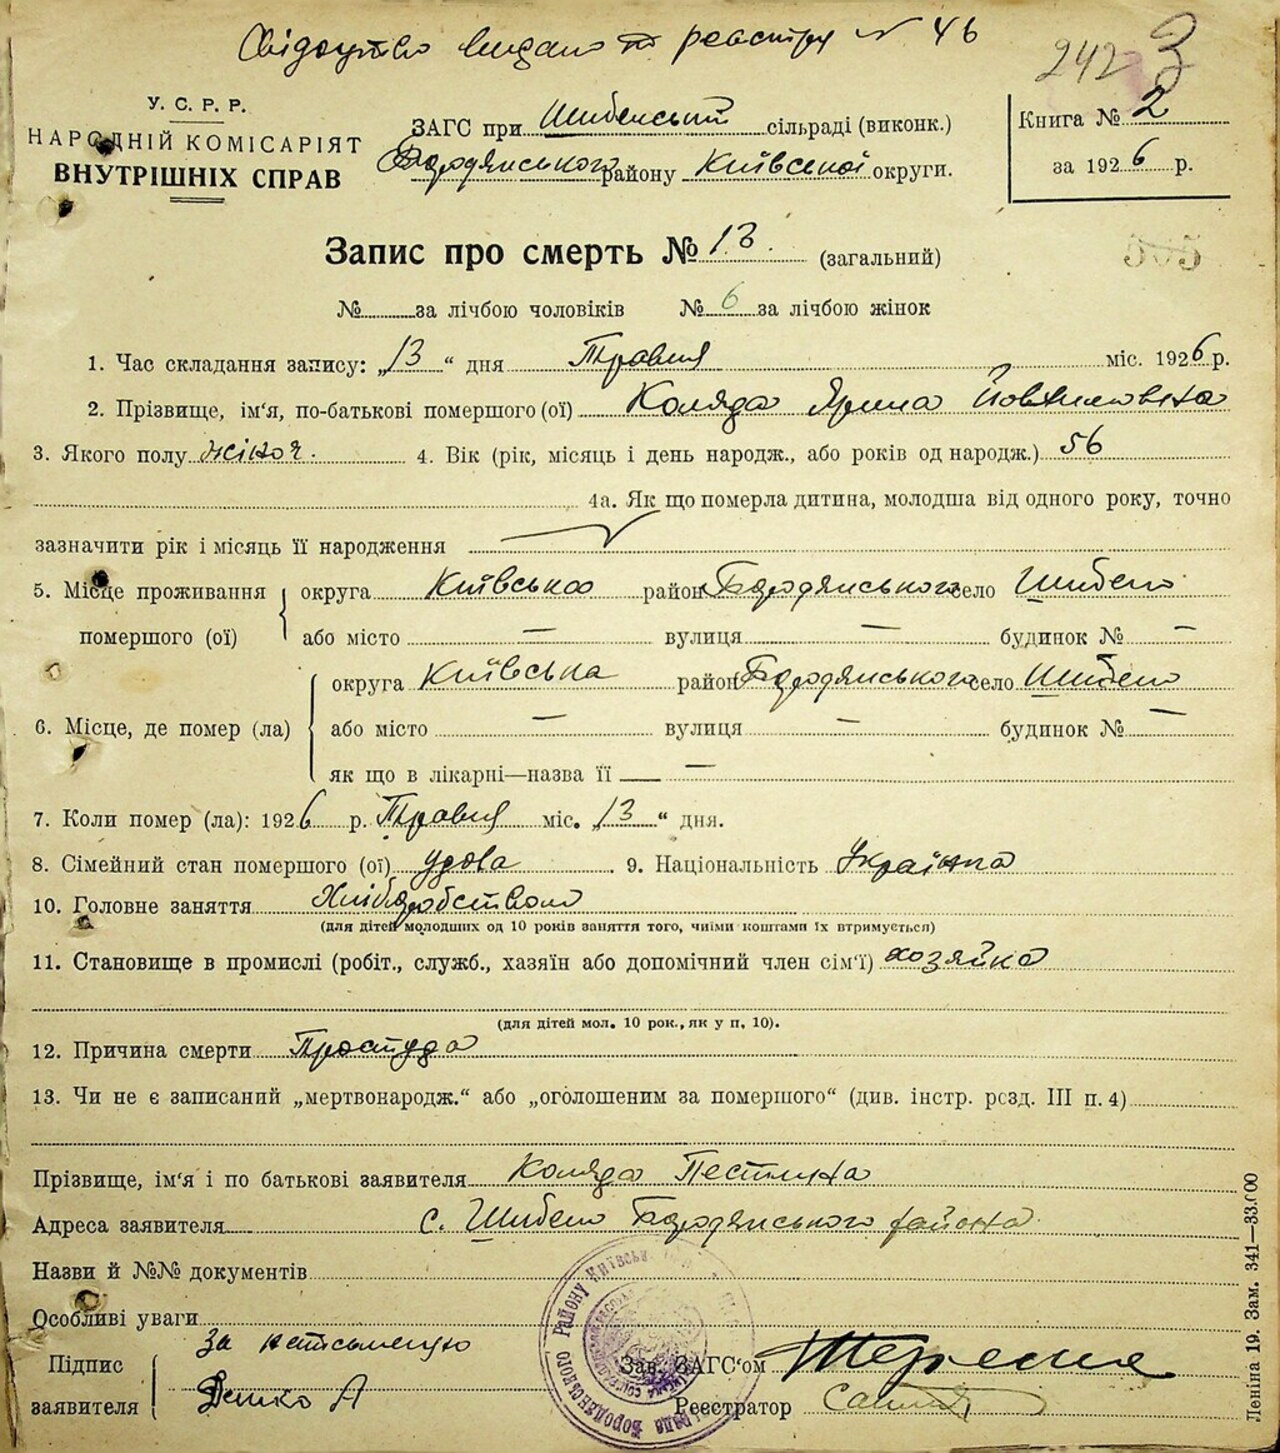 Свідоцтво видано по реєстру № 46
242 3
У. С. Р. Р.
НАРОДНІЙ КОМІСАРІЯТ
ВНУТРІШНІХ СПРАВ
ЗАГС при Шибенській сільраді (виконк.)
Бородянського району Київської округи.
Книга № 2
за 1926 р.
Запис про смерть № 13. (загальний)
№ за лічбою чоловіків № 6 за лічбою жінок
1. Час складання запису: „13“ дня Травня міс. 1926 р.
2. Прізвище, ім'я, по-батькові помершого (ої) Коляда Ярина
3. Якого полу жіноч. 4. Вік (рік, місяць і день народж., або років од народж.) 56
4а. Як що померла дитина, молодша від одного року, точно
зазначити рік і місяць її народження
5. Місце проживання помершого (ої) округа Київська район Бородянського село Шибено
або місто — вулиця — будинок № —
6. Місце, де помер (ла) округа Київська район Бородянського село Шибено
або місто — вулиця — будинок № —
як що в лікарні—назва її —
7. Коли помер (ла): 1926 р. Травня міс. „13“ дня.
8. Сімейний стан помершого (ої) удова. 9. Національність Україна
10. Головне заняття Хліборобством
(для дітей молодших од 10 років заняття того, чиїми коштами їх втримується)
11. Становище в промислі (робіт., служб., хазяїн або допомічний член сім'ї) хозяйка
(для дітей мол. 10 рок., як у п. 10).
12. Причина смерти Простуда
13. Чи не є записаний „мертвонародж.“ або „оголошеним за помершого“ (див. інстр. розд. III п. 4)
Прізвище, ім'я і по батькові заявителя Коляда
Адреса заявителя с. Шибено Бородянського района
Назви й №№ документів
Особливі уваги
Підпис заявителя За неписьменну
Демко А
Зав. ЗАГС'ом
Реєстратор
Бородянського Району Київськ
Леніна 19. Зам. 341—33.000